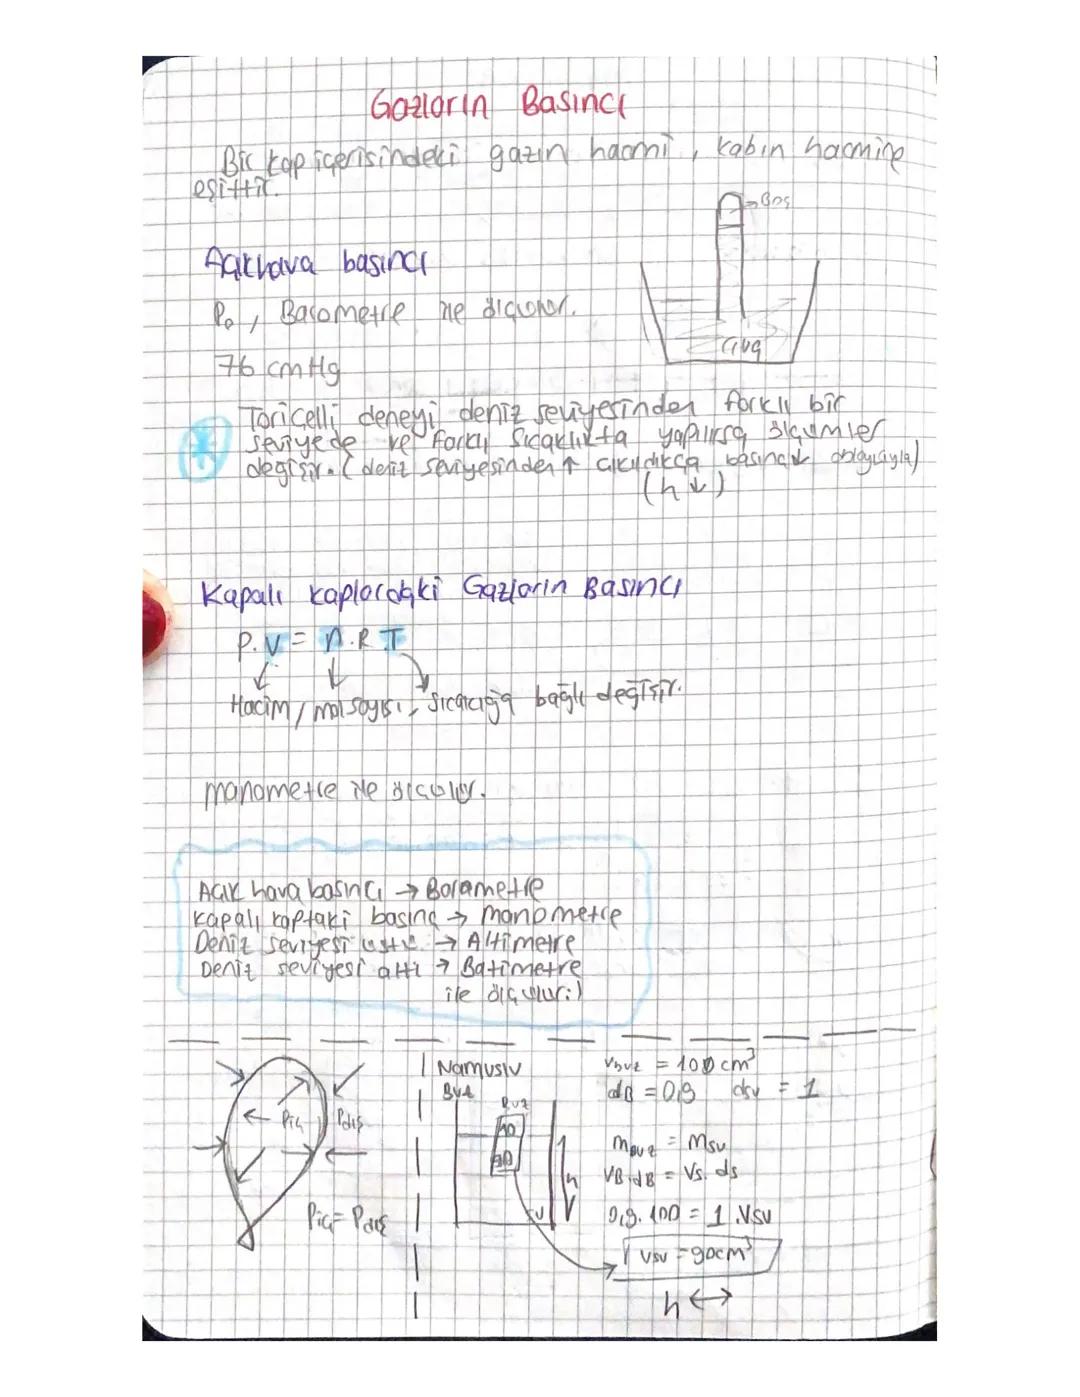 Gazların Basıncı
Bir kap içerisindeki gazın hacmi, kabın hacmine
eşittir.
Boş
Açıkhava basıncı
P₀, Barometre ile ölçülür.
Cıva
76 cmHg
Toriçelli deneyi deniz seviyesinden farklı bir
seviyede ve farklı sıcaklıkta yapılırsa ölçümler
değişir. (deniz seviyesinden ↑ çıkıldıkça basınç ↓ dolayısıyla)
(h ↓)
Kapalı kaplardaki Gazların Basıncı
P.V = n.R.T
Hacim, mol sayısı, sıcaklığa bağlı değişir.
manometre ile ölçülür.
Açık hava basıncı → Barometre
Kapalı kaptaki basınç → manometre
Deniz seviyesi üstü → Altimetre
Deniz seviyesi altı → Batimetre
ile ölçülür:)
Piç Pdış
Piç = Pdış
Namuslu
Buz
Buz
10
90
h
su
Vbuz = 100 cm³
dB = 0,9 dsu = 1
mbuz = msu
VB.dB = Vs.ds
0,9.100 = 1.Vsu
Vsu = 90cm³
h ↔